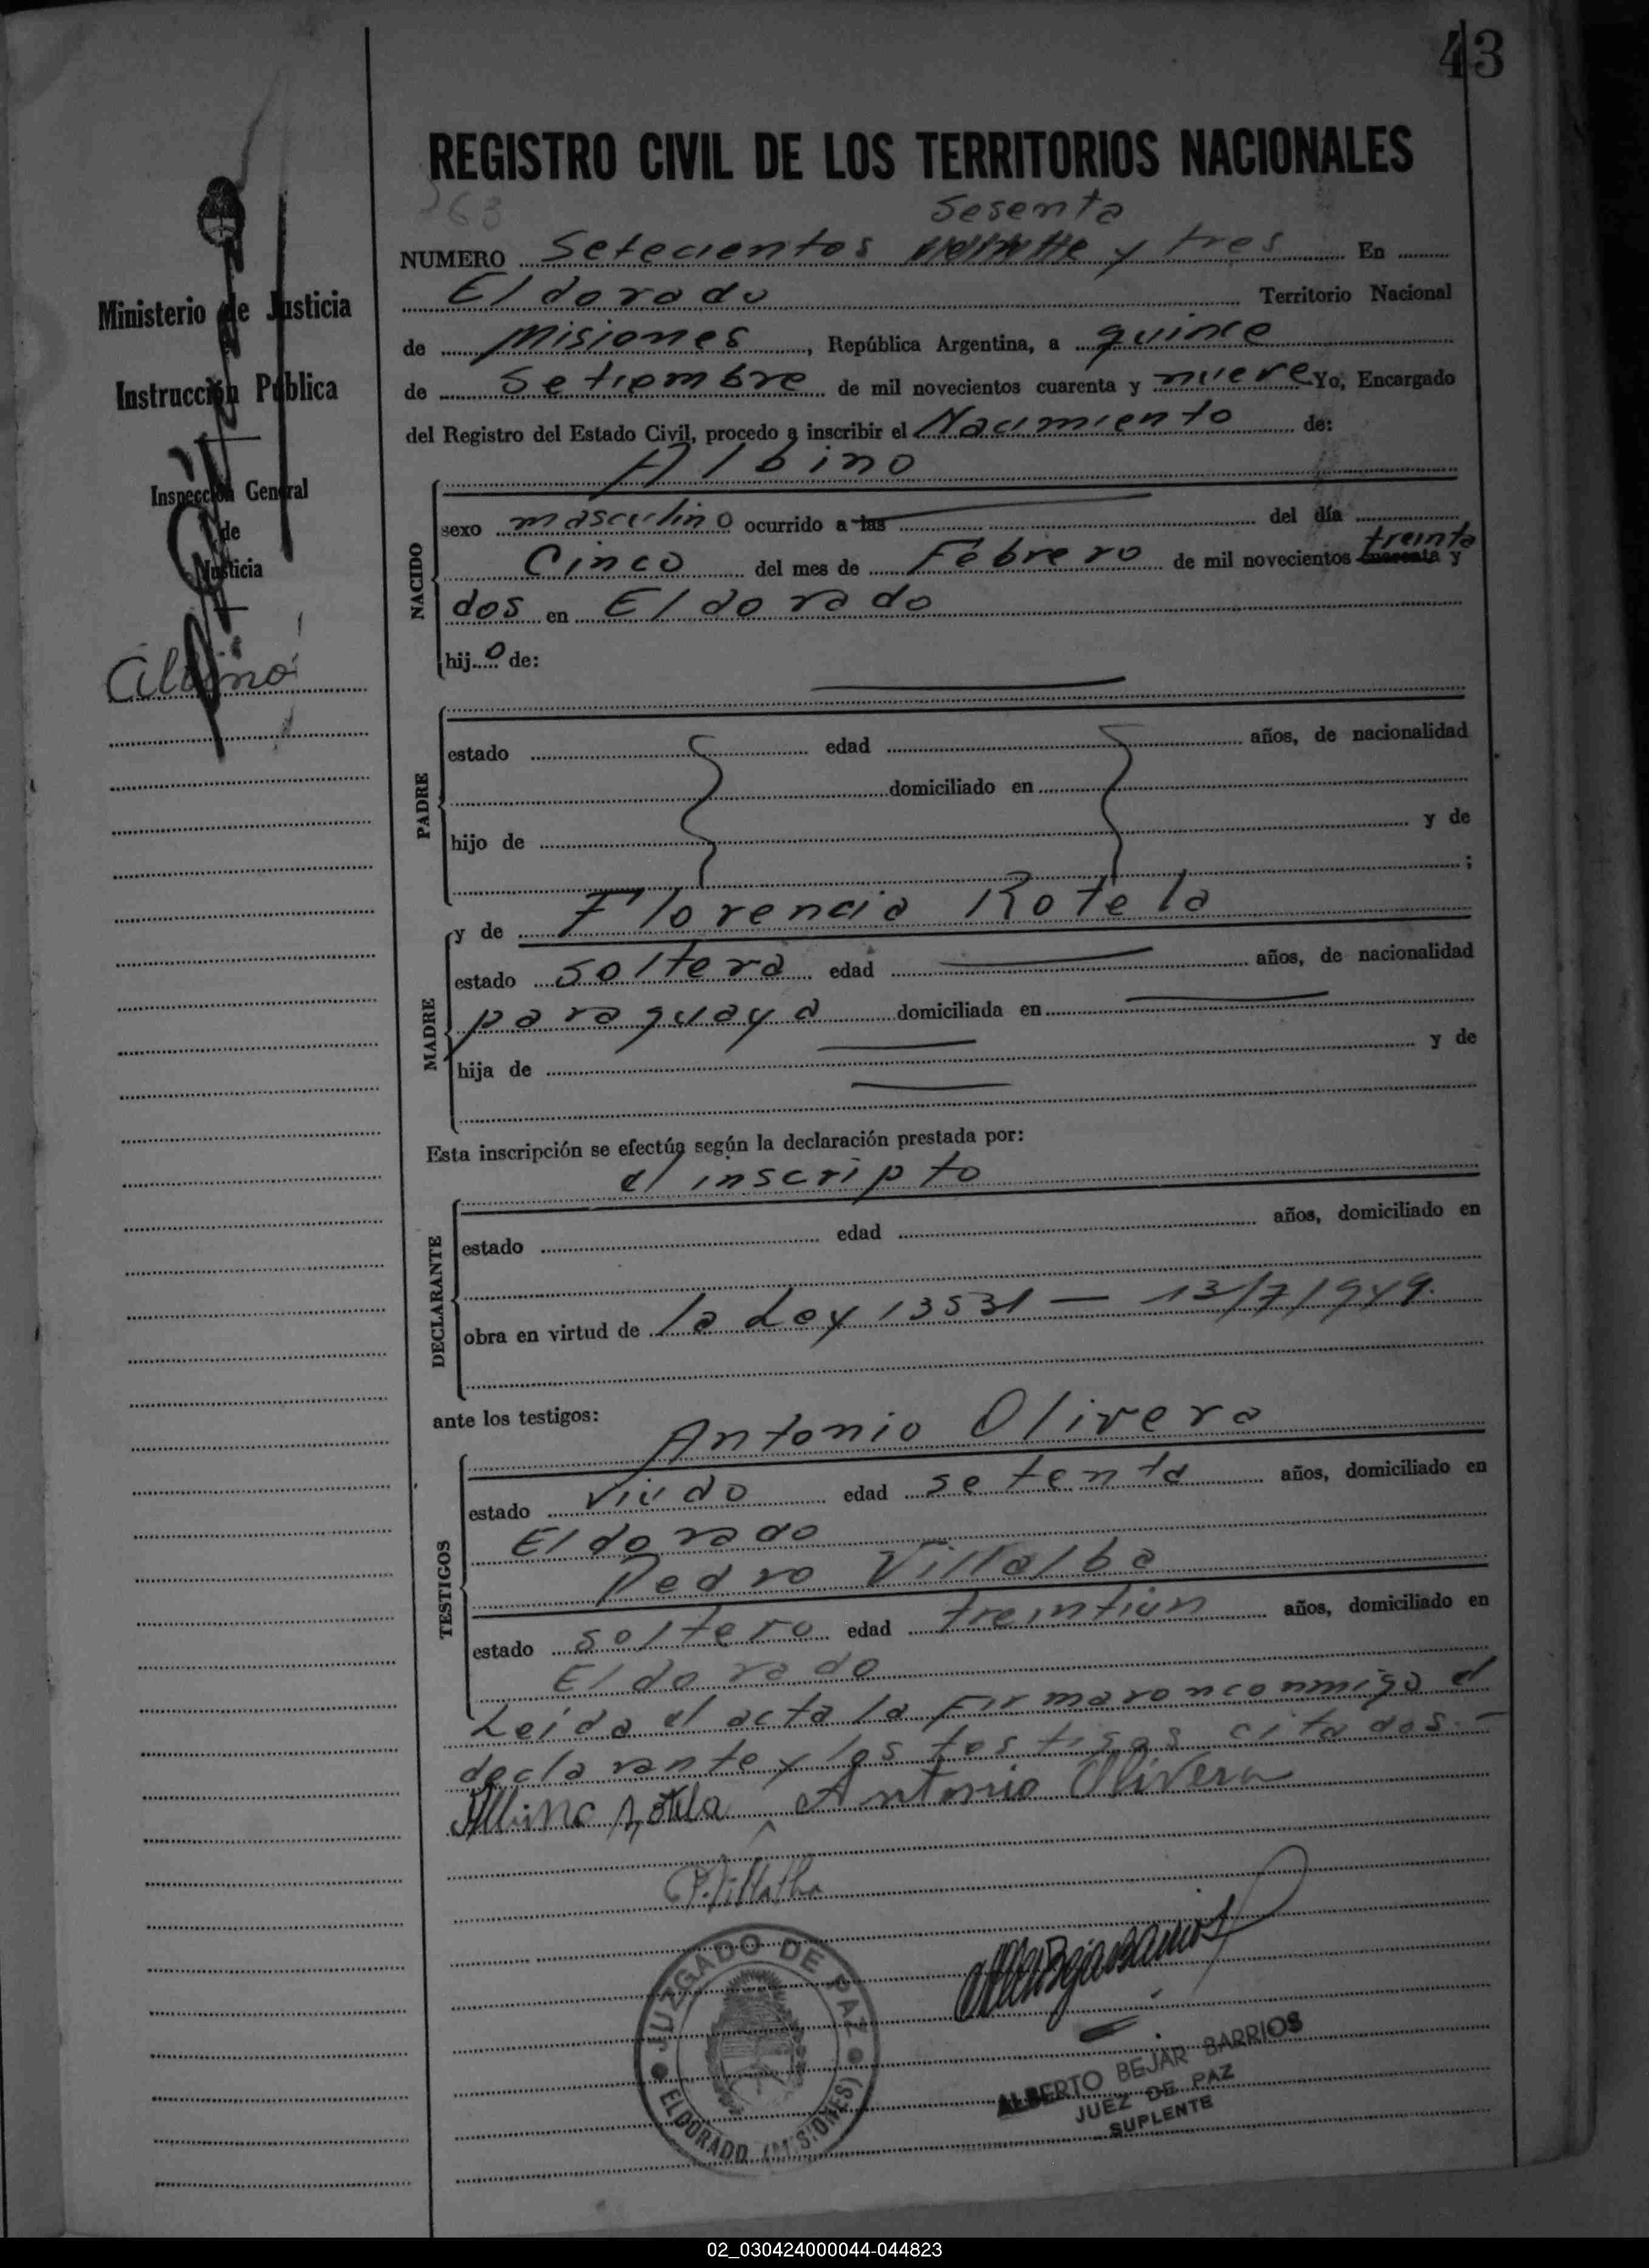 43
REGISTRO CIVIL DE LOS TERRITORIOS NACIONALES
763
Sesenta
NUMERO Setecientos y tres En
Eldorado Territorio Nacional
de Misiones, República Argentina, a quince
de Setiembre de mil novecientos cuarenta y nueve Yo, Encargado
del Registro del Estado Civil, procedo a inscribir el Nacimiento de:
Albino
NACIDO
sexo masculino ocurrido a las del día
treinta
Cinco del mes de Febrero de mil novecientos cuarenta y
dos en Eldorado
hijo de:
PADRE
estado edad años, de nacionalidad
domiciliado en
hijo de y de
;
MADRE
y de Florencia Rotela
estado soltera edad años, de nacionalidad
paraguaya domiciliada en
hija de y de
Esta inscripción se efectúa según la declaración prestada por:
el inscripto
DECLARANTE
estado edad años, domiciliado en
obra en virtud de la Ley 13531 — 13/7/949.
ante los testigos:
Antonio Olivera
TESTIGOS
estado viudo edad setenta años, domiciliado en
Eldorado
Pedro Villalba
estado soltero edad treintiun años, domiciliado en
Eldorado
Leida el acta la firmaron conmigo el
declarante y los testigos citados.-
Albino Rotela Antonio Olivera
P. Villalba
JUZGADO DE PAZ
ELDORADO (MISIONES)
ALBERTO BEJAR BARRIOS
JUEZ DE PAZ
SUPLENTE
Ministerio de Justicia
Instrucción Pública
Inspección General
de
Justicia
Albino
02_030424000044-044823